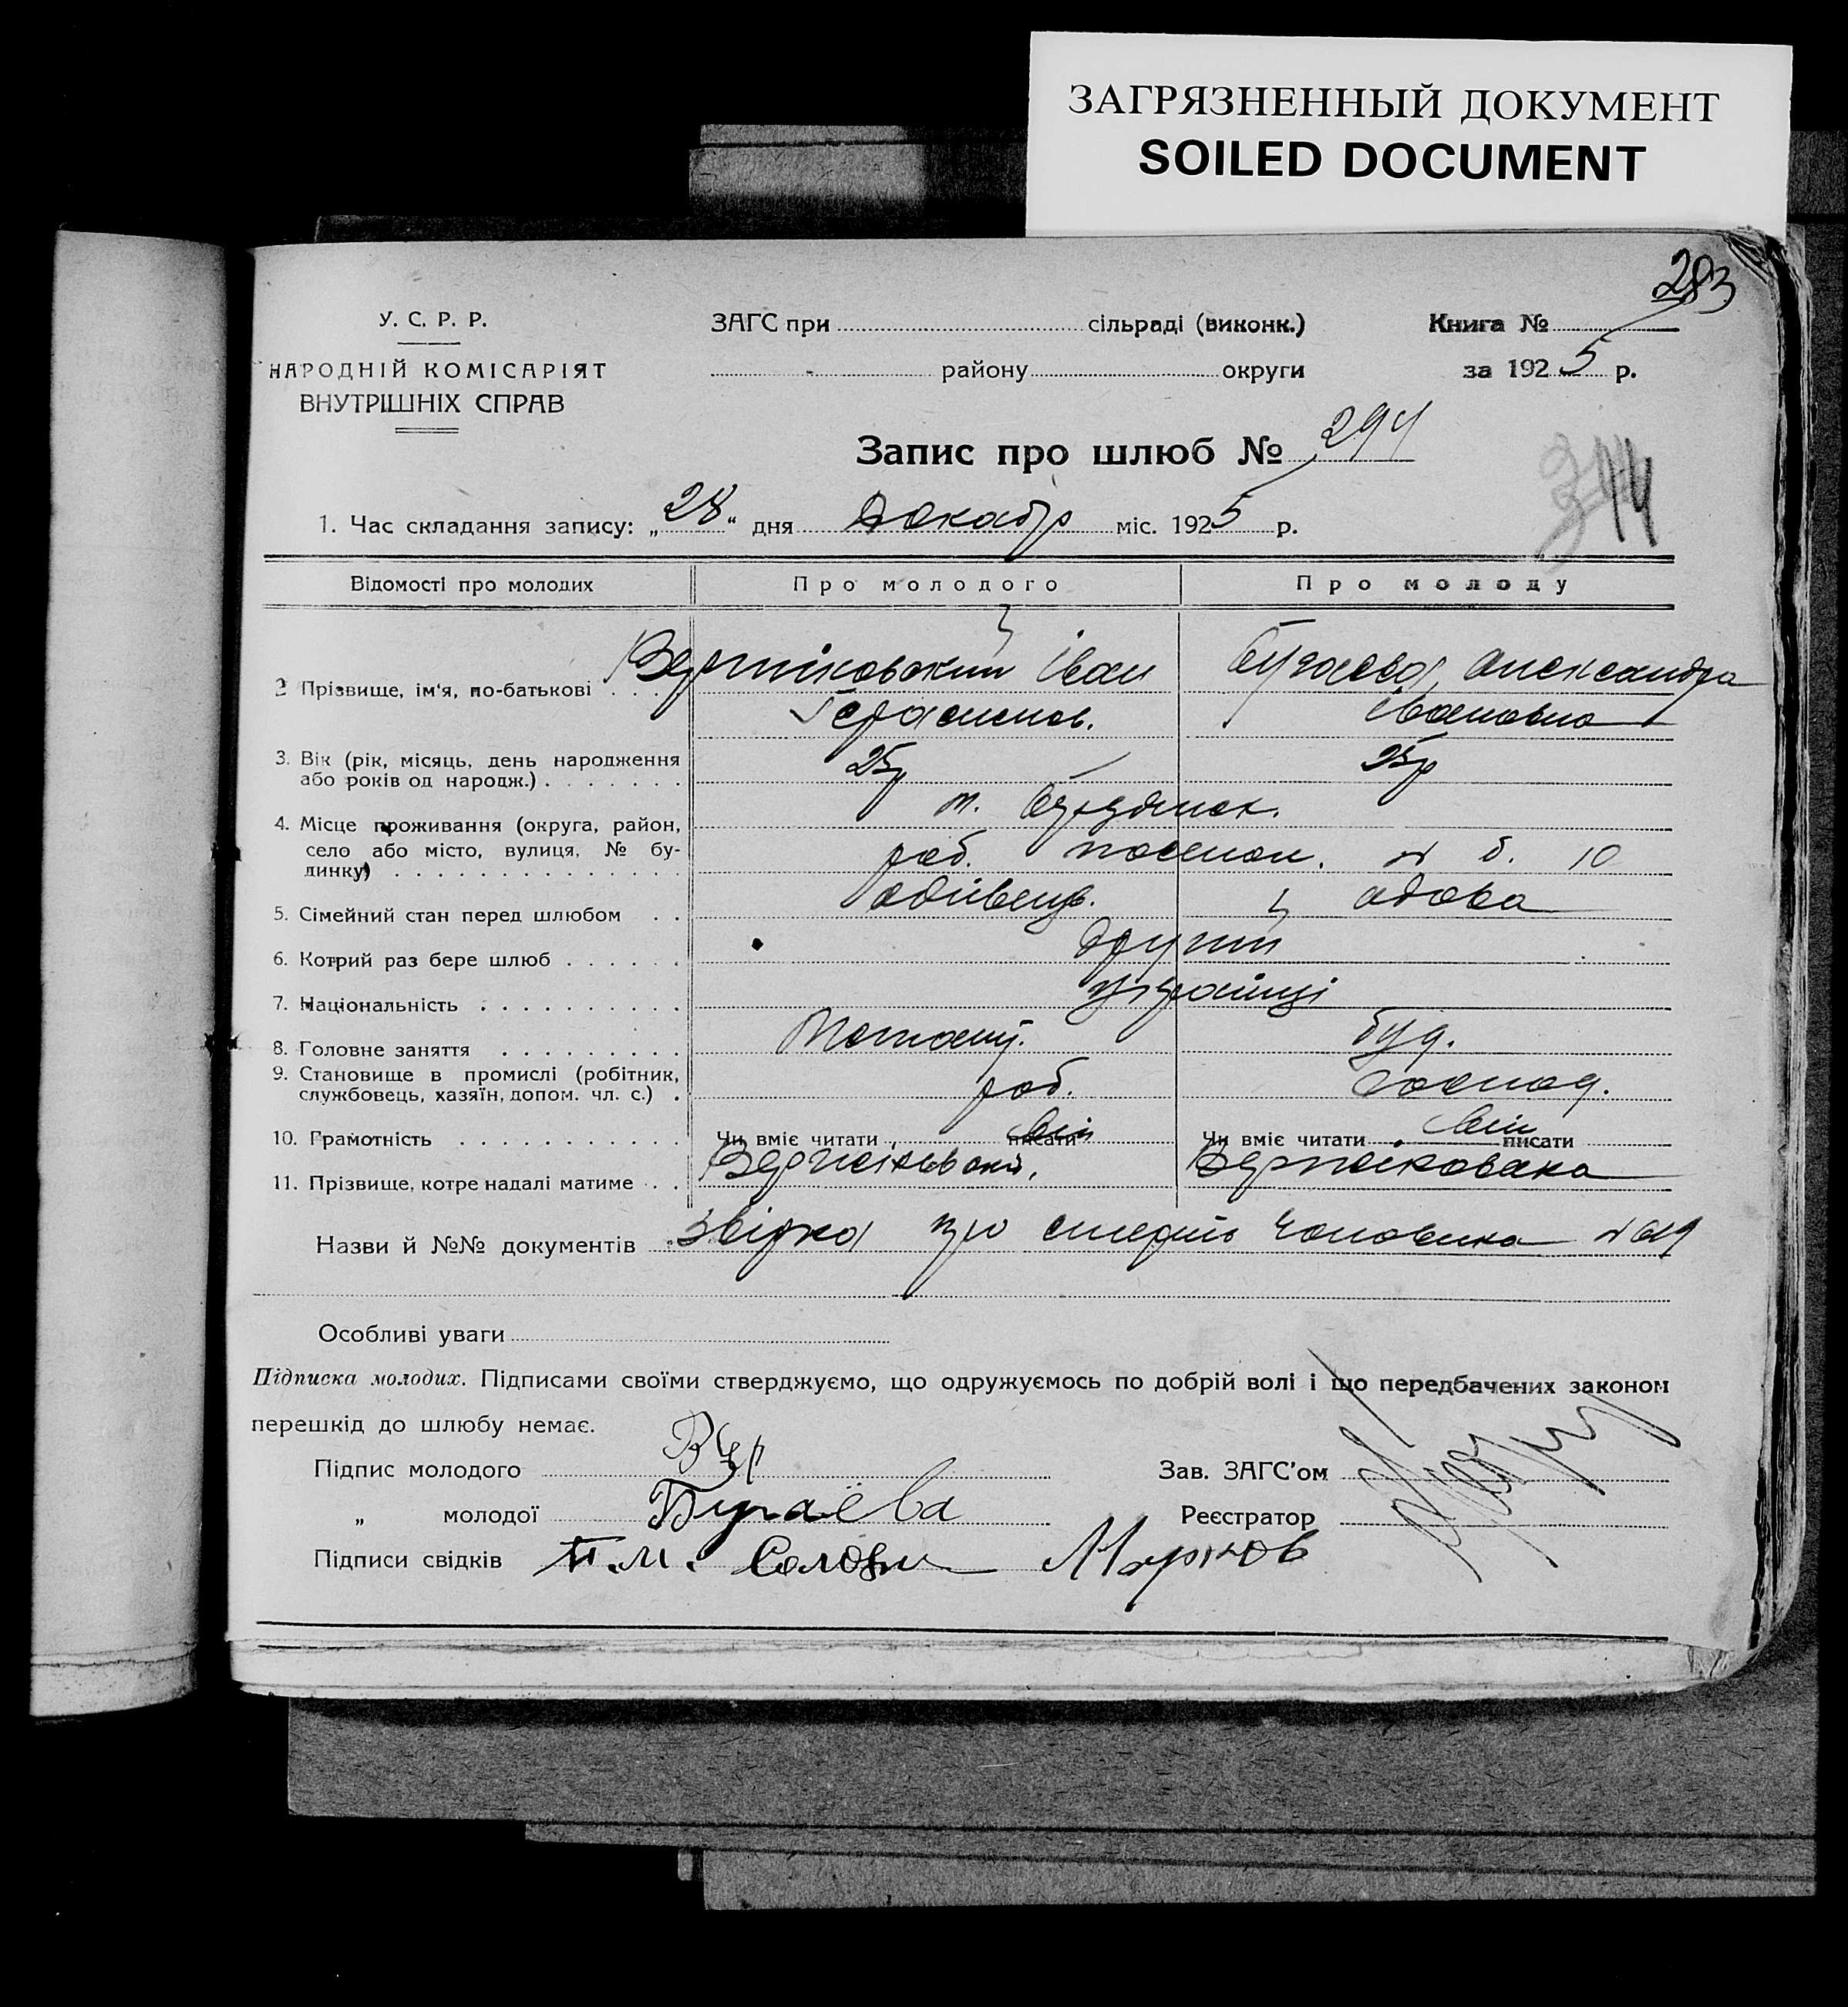 ЗАГРЯЗНЕННЫЙ ДОКУМЕНТ
SOILED DOCUMENT
283
У. С. Р. Р.
НАРОДНІЙ КОМІСАРІЯТ
ВНУТРІШНІХ СПРАВ
ЗАГС при сільраді (виконк.)
району округи
Книга №
за 1925 р.
Запис про шлюб № 294
1. Час складання запису: „28“ дня Декабр міс. 1925 р.
Відомості про молодих Про молодого Про молоду
2 Прізвище, ім‘я, по-батькові Іван Александра
Герасимов. Івановна
3. Вік (рік, місяць, день народження 25р 25р
або років од народж.)
4. Місце проживання (округа, район,
село або місто, вулиця, № бу- роб. № б. 10
динку)
5. Сімейний стан перед шлюбом вдова
6. Котрий раз бере шлюб другий
7. Національність українці
8. Головне заняття
9. Становище в промислі (робітник, роб. господ.
службовець, хазяїн, допом. чл. с.)
10. Грамотність Чи вміє читати писати Чи вміє читати писати
11. Прізвище, котре надалі матиме
Назви й №№ документів Звідка про смерть чоловика
Особливі уваги
Підписка молодих. Підписами своїми стверджуємо, що одружуємось по добрій волі і що передбачених законом
перешкід до шлюбу немає.
Підпис молодого Вер Зав. ЗАГС’ом
„ молодої Бугаёва Реєстратор
Підписи свідків П.М. Марков